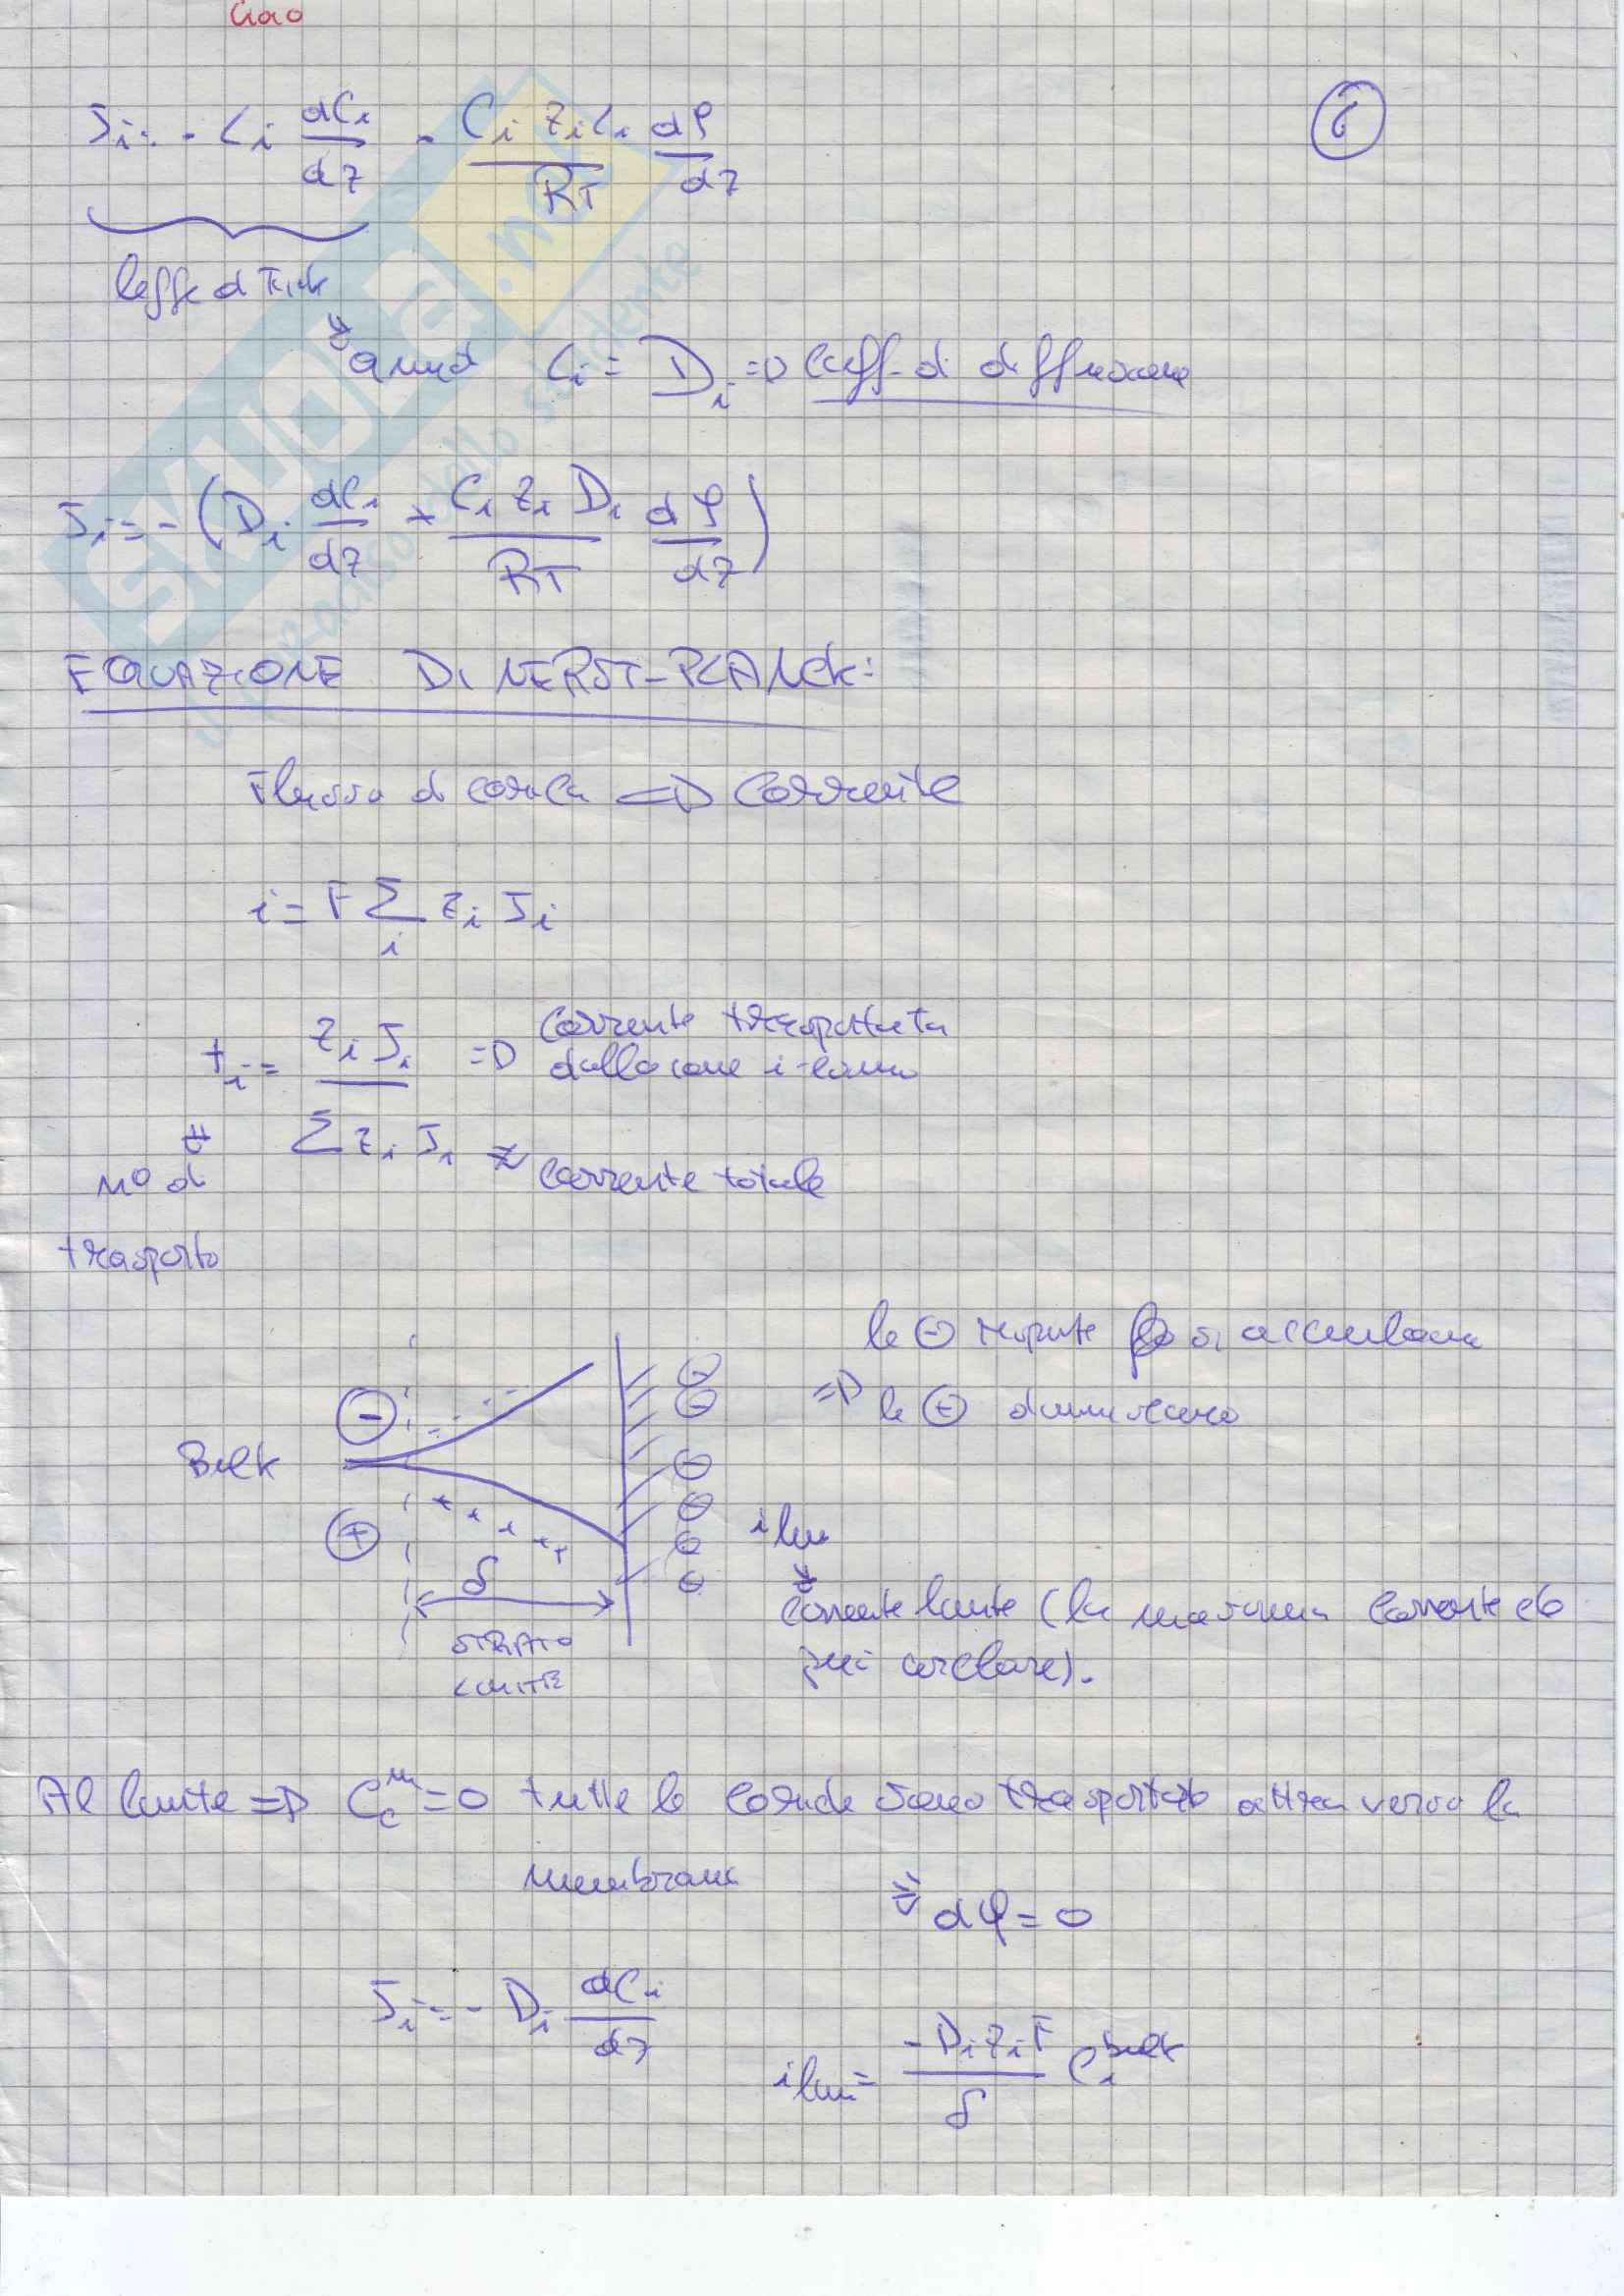 Ciao
6
Ji = - Li dCi/dz - Ci zi Li/RT dφ/dz
legge di Fick
quindi Li = Di => Coeff. di diffusione
Ji = - (Di dCi/dz + Ci zi Di/RT dφ/dz)
EQUAZIONE DI NERST-PLANCK:
Flusso di carica => Corrente
i = F Σi zi Ji
ti = zi Ji / Σ zi Ji
=> corrente trasportata
dallo ione i-esimo
corrente totale
n° di
trasporto
le ⊖ respinte si accumulano
=> le ⊕ diminuiscono
Bulk
⊖
⊕
δ
STRATO
LIMITE
i lim
Corrente limite (la massima corrente che
può circolare).
Al limite => Cc^m = 0 tutte le cariche sono trasportate attraverso la
membrana
dφ = 0
Ji = - Di dCi/dz
i lim = -Di zi F/δ Ci^bulk
SKUOLA.net